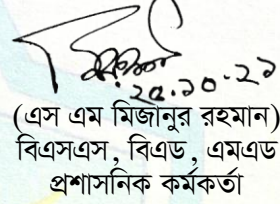 ২৫.১০.২১
(এস এম মিজানুর রহমান)
বিএসএস, বিএড, এমএড
প্রশাসনিক কর্মকর্তা